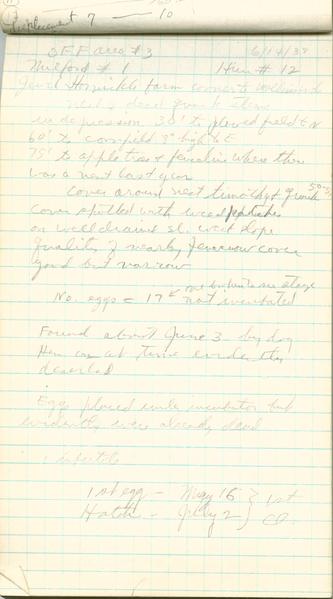 11
Replacement 7 — 10
Off area #3 6/14/38
Milford #1 Hen #12
farm corner to
nest
in depression 30' to plowed field N
60' to cornfield 3" high to E
75' to apple tree & fenceline where there
was a nest last year
Cover around nest timothy & June 50-50
cover spotted with weed patches
on well drained sl. west slope
Quality of nearby fencerow cover
good but narrow
No. eggs = 17 not incubated
Found about June 3 by dog
Hen on at time evidently
deserted
Eggs placed under incubator but
evidently were already dead
1 infertile
1st egg - May 16 } 1st
Hatch - July 2 }